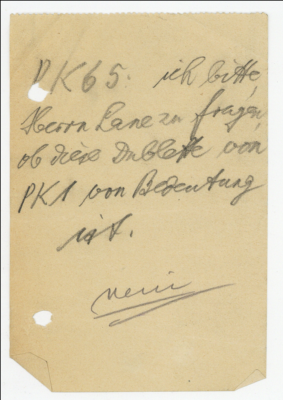 PK65. ich bitte,
Herrn Lane zu fragen,
ob diese Dublette von
PK1 von Bedeutung
ist.
nein